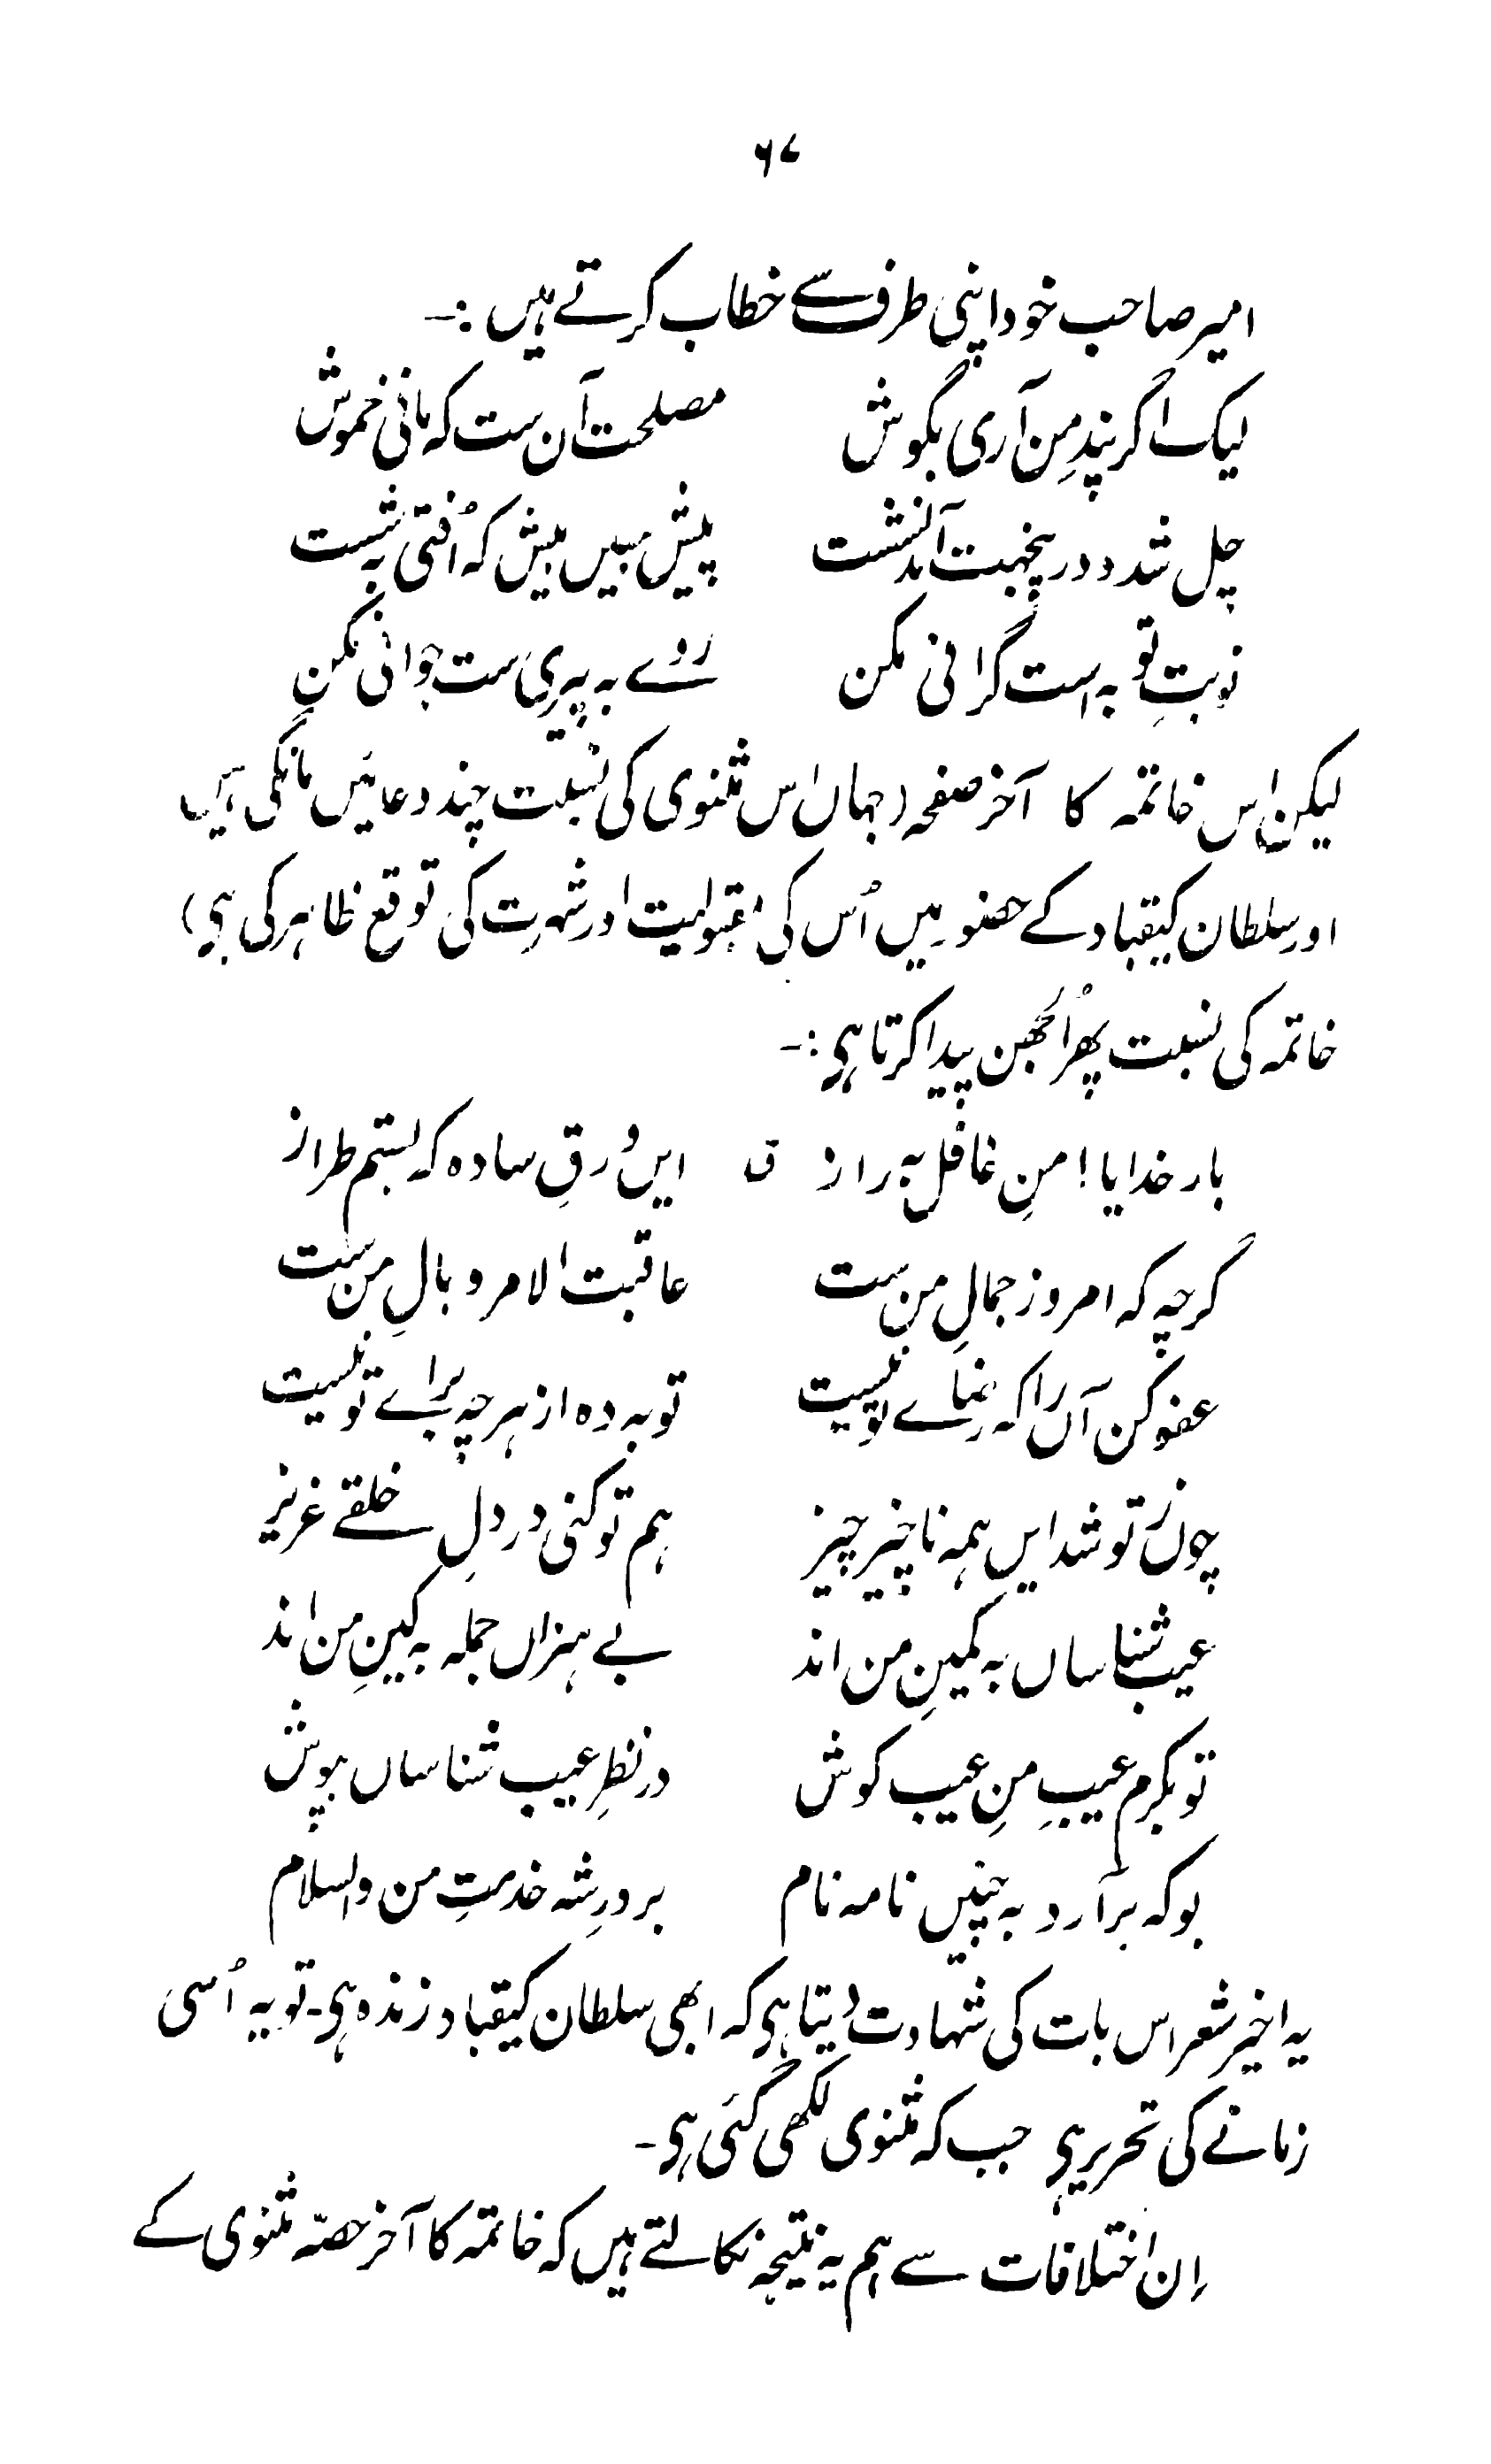 ۶۷
امیر صاحب خود اپنی طرف سے خطاب کرتے ہیں :-
لیک اگر پندِ من آری بگوش    مصلحت آن ست که مانی خموش
چل شد و در پنجهت آمد نشست    پیش مبیں بیش که اُفتی به شست
نوبتِ توبه است گرانی مکن    روے به پیری ست جوانی مکن
لیکن اس خاتمہ کا آخر صفحہ (جہاں اس مثنوی کی نسبت چند دعائیں مانگی ہیں
اور سلطان کیقباد کے حضور میں اُس کی مقبولیت اور شہرت کی توقع ظاہر کی ہی)
خاتمہ کی نسبت پھر اُلجھن پیدا کرتا ہی :-
بار خدایا! منِ غافل به راز    ق    ایں ورقِ سادہ که بستم طراز
گرچہ که امروز جمالِ من ست    عاقبت الامر وبالِ من ست
عفو کن آں را که رضاے تو نیست    توبہ دہ از ہرچہ براے تو نیست
چوں ز تو شد ایں ہمہ ناچیز چیز    ہم تو کنی در دلِ خلقے عزیز
عیب شناساں به کمینِ من اند    بے ہنراں جملہ به کینِ من اند
تو بکرم عیبِ منِ عیب کوش    در نظرِ عیب شناساں بپوش
بو که برآرد به چنیں نامہ نام    بر درِ شہ خدمتِ من والسلام
یہ اخیر شعر اس بات کی شہادت دیتا ہی کہ ابھی سلطان کیقباد زندہ ہی۔ تو یہ اُسی
زمانے کی تحریر ہی جب کہ مثنوی لکھی گئی ہی۔
اِن اختلافات سے ہم یہ نتیجہ نکالتے ہیں کہ خاتمہ کا آخر حصّہ مثنوی کے